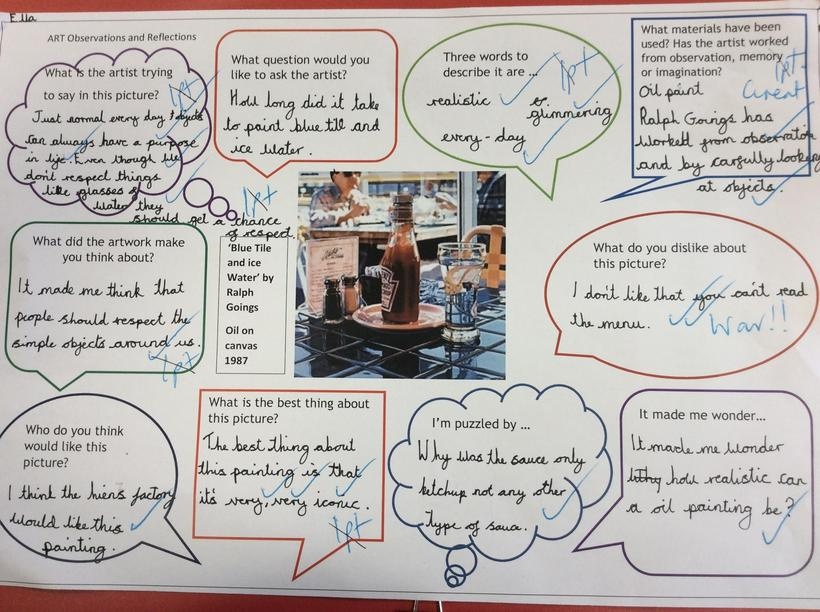 Ella
ART Observations and Reflections
What is the artist trying
to say in this picture?
1pt
Just normal every day objects
can always have a purpose
in life. Even though we
don't respect things
like glasses of
water they
should get a chance
of respect.
1pt
What question would you
like to ask the artist?
How long did it take
to paint blue till and
ice water.
Three words to
describe it are ...
1pt
realistic
glimmering
every-day
What materials have been
used? Has the artist worked
from observation, memory
or imagination?
1pt
Oil paint
Great
Ralph Goings has
worked from observation
and by carfully looking
at objects.
What did the artwork make
you think about?
It made me think that
people should respect the
simple objects around us.
1pt
'Blue Tile
and ice
Water' by
Ralph
Goings
Oil on
canvas
1987
HEINZ
What do you dislike about
this picture?
I don't like that you can't read
the menu.
Wow!!
Who do you think
would like this
picture?
I think the hiens factory
would like this
painting.
What is the best thing about
this picture?
The best thing about
this painting is that
it's very, very iconic.
1pt
I'm puzzled by ...
Why was the sauce only
ketchup not any other
type of sauce.
It made me wonder...
It made me wonder
why how realistic can
a oil painting be?